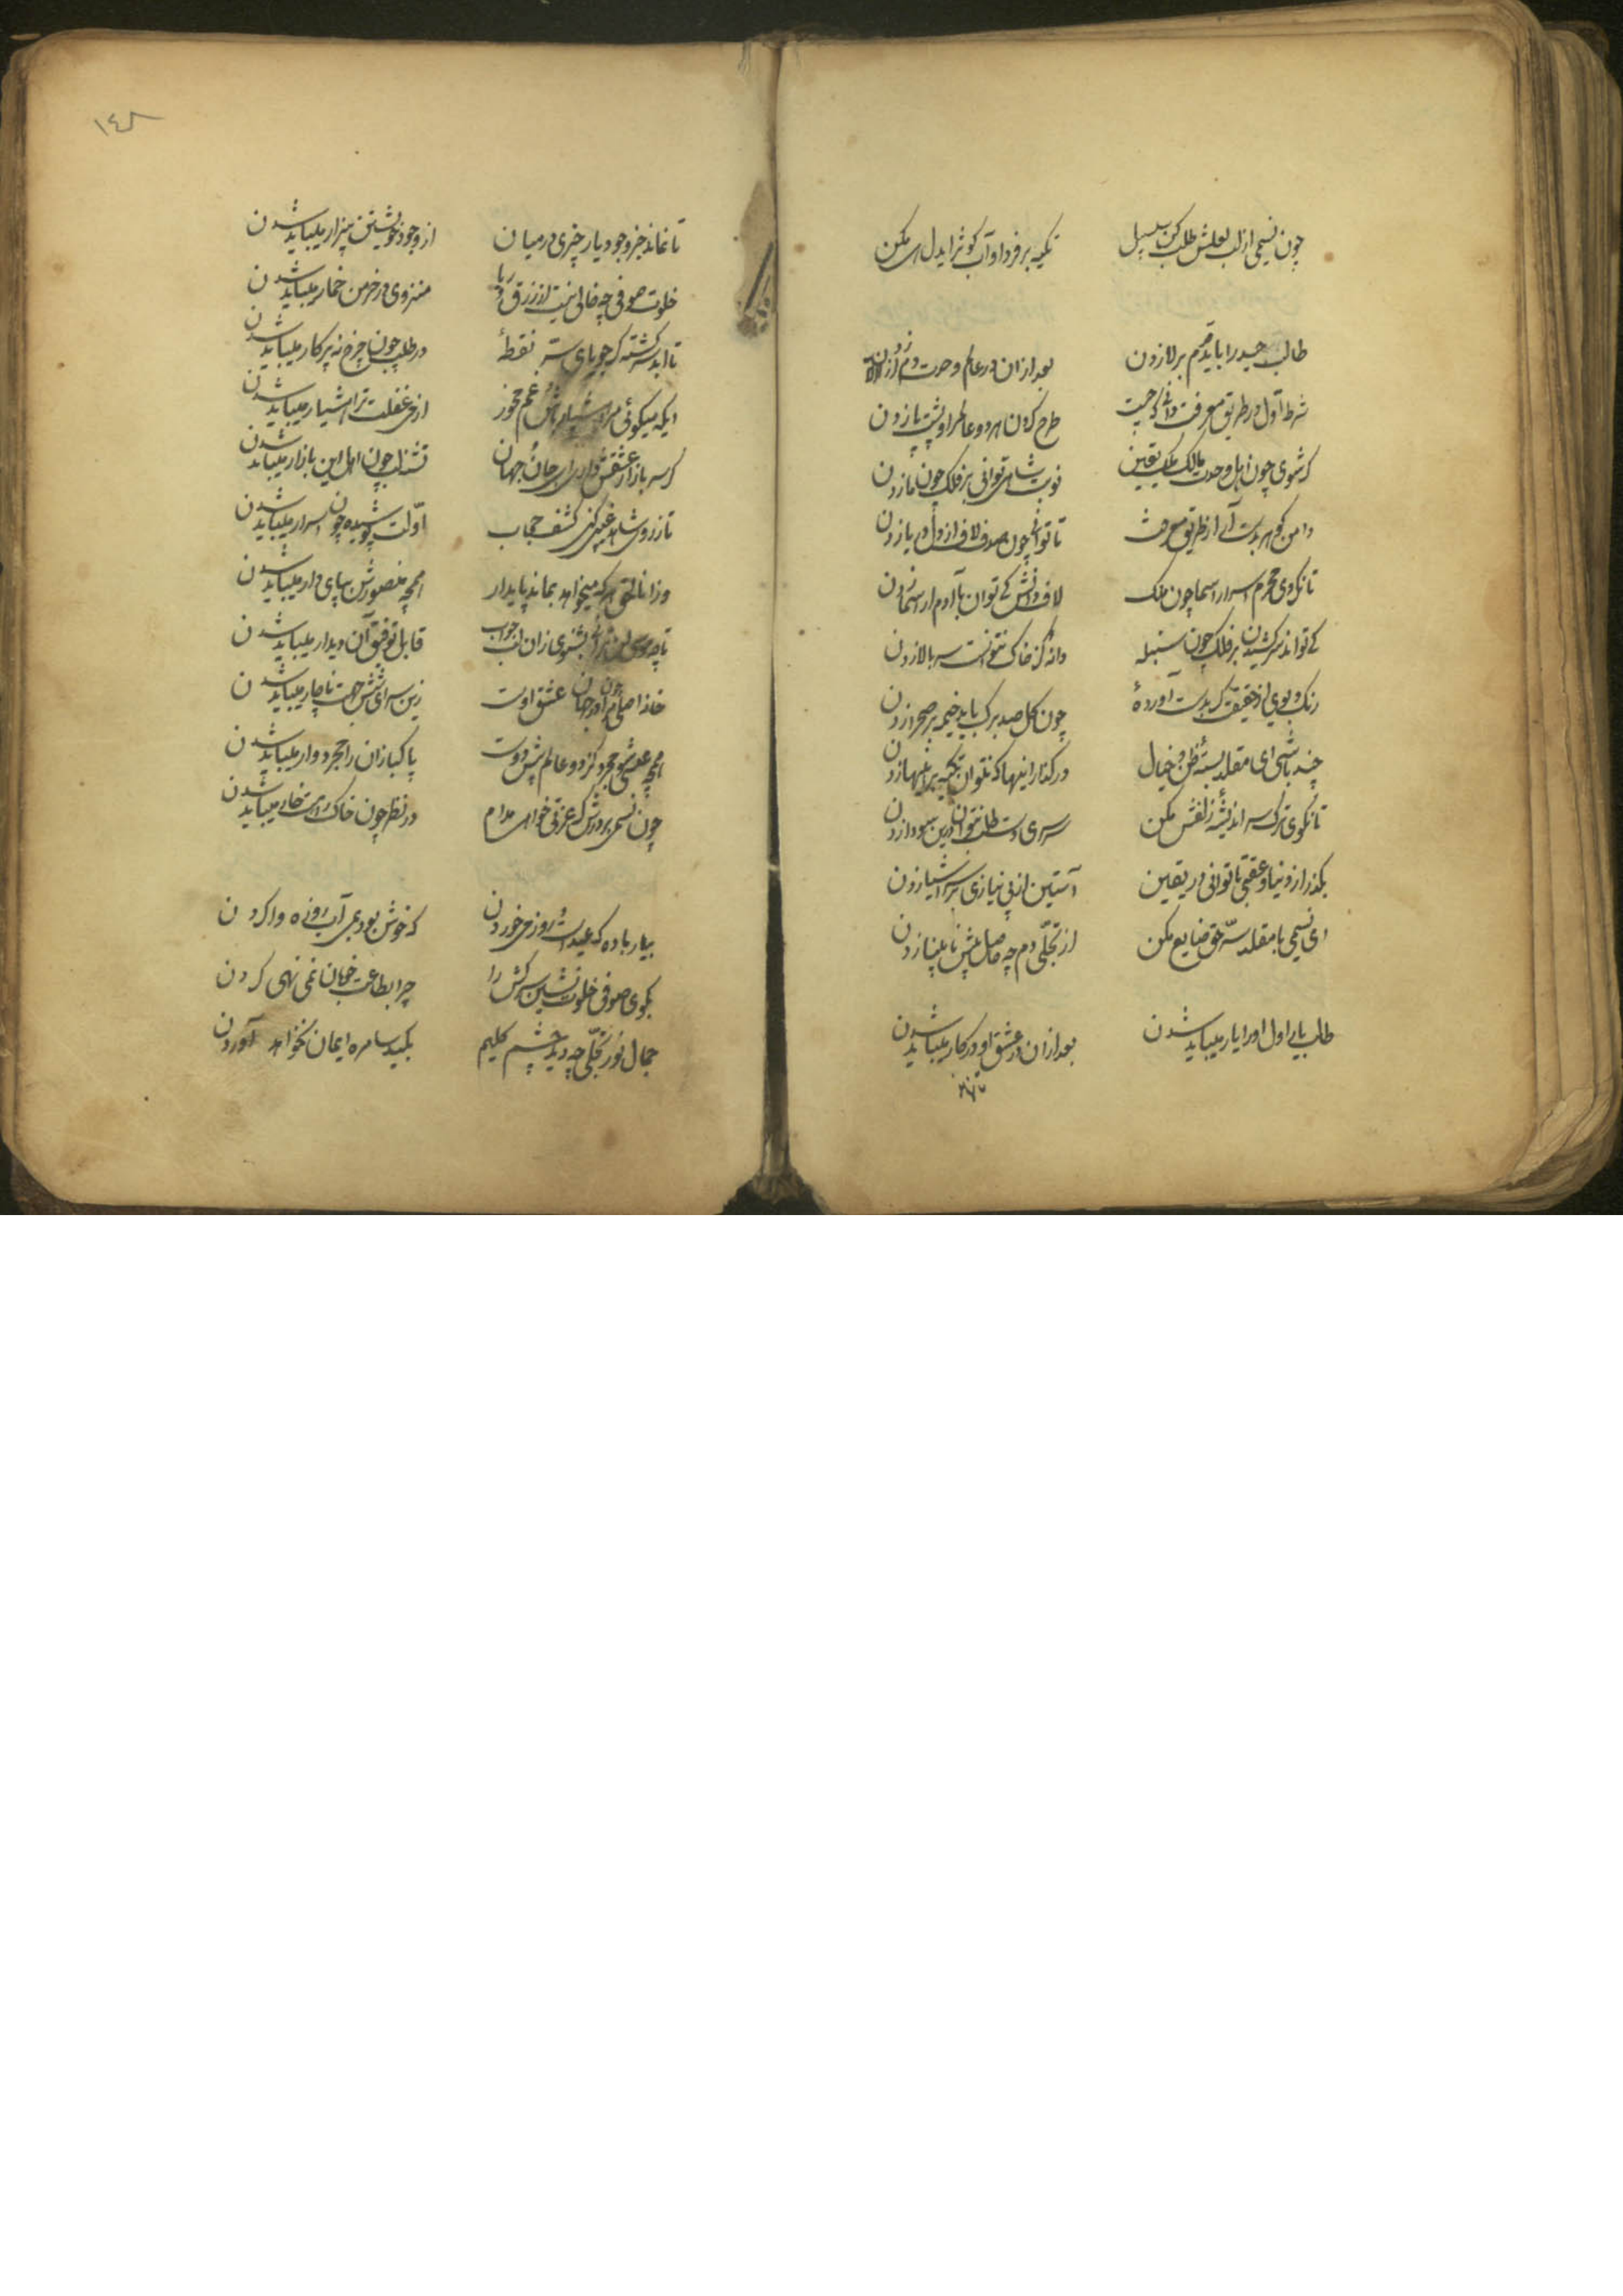 چون نسیمی از لب لعلش طلب کن سلسبیل تکیه بر فردا و آب کوثر ای دل مکن
طالب توحید را باید قدم بر لا زدن بعد از آن در عالم وحدت دم از الا زدن
شرط اول در طریق معرفت دانی که چیست طرح کردن هر دو عالم را و پشت پا زدن
گر شوی چون اهل وحدت مالک ملک یقین نوبت شاهی توانی بر فلک چون ما زدن
دامن گوهر بدست آر از طریق معرفت تا توانی چون صدف لاف از دل دریا زدن
تا نگردی محرم اسرار اسما چون ملک لاف دانش کی توان با آدم از اسما زدن
کی تواند سر کشیدن بر فلک چون سنبله دانه کز خاک نتوانست سر بالا زدن
رنگ و بوی از حقیقت گر بدست آورده چون گل صد برگ باید خیمه بر صحرا زدن
چند باشی ای مقلد بسته ظن و خیال در گذار اینها که نتوان تکیه بر اینها زدن
تا نگوی ترک سر اندیشه زلفش مکن سرسری دست طلب نتوان درین سودا زدن
بگذر از دنیا و عقبی تا توانی در یقین آستین از بی نیازی بر سر اشیا زدن
ای نسیمی با مقلد سر حق ضایع مکن از تجلی دم چه حاصل پیش نابینا زدن
طالب یاری اول او را یار میباید شدن بعد از آن در عشق او در کار میباید شدن
تا نماند
١٤٨
تا نماند جز وجود یار چیزی در میان از وجود خویشتن بیزار میباید شدن
خلوت صوفی چه خالی نیست از زرق و ریا منزوی در خرمن خمار میباید شدن
تا ابد سرگشته گر جویای سر نقطهٔ در طلب چون چرخ نه پرکار میباید شدن
ایکه میگوئی مرا هشیار باش و غم مخور از می غفلت ترا هشیار میباید شدن
گر سر بازار عشقش داری ای جان جهان تشنه لب چون اهل این بازار میباید شدن
تا ز روی شاهد غیبی کنی کشف حجاب اولت پوشیده چون اسرار میباید شدن
وز اناالحق هر که میخواهد بماند پایدار همچو منصورش بپای دار میباید شدن
تا چو موسی لن ترانی نشنوی زان لب جواب قابل توفیق آن دیدار میباید شدن
خانه اصلی مرا در جهان چون عشق اوست زین سرای شش جهت ناچار میباید شدن
همچو عیسی شو مجرد کز دو عالم پیش دوست پاکبازان را مجردوار میباید شدن
چون نسیمی بر درش گر عزتی خواهی مدام در نظر چون خاک راهت خوار میباید شدن
بیار باده که عیدست و روز می خوردن که خوش بود بمی آب روزه وا کردن
بگوی صوفی خلوت نشین سرکش را چرا بطاعت خوبان نمی نهی گردن
جمال نور تجلی چو دید چشم کلیم بکید سامره ایمان نخواهد آوردن